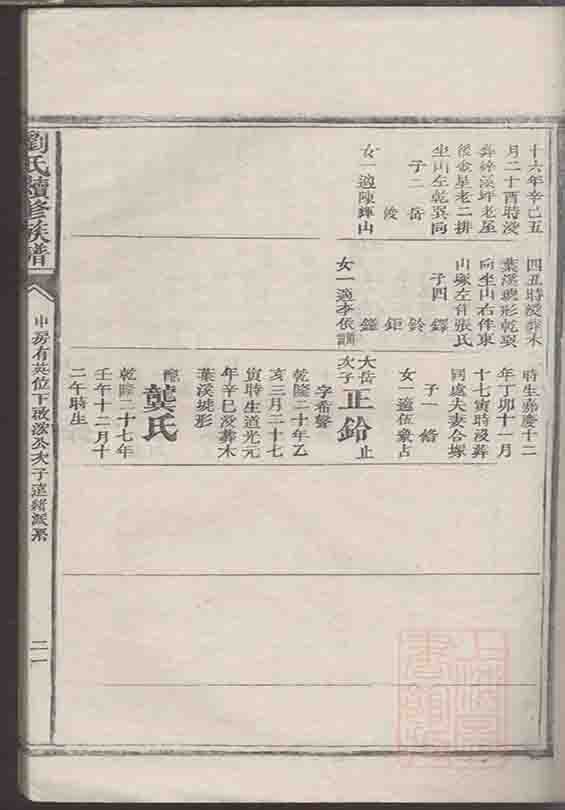 十六年辛巳五
月二十酉時歿
葬梓溪坪老屋
後金星老二排
坐山左乾巽向
子二 岳
峻
女一適陳輝山
四丑時歿葬木
葉溪塊形乾巽
向坐山右伴東
山塚左伴張氏
子四 鐸
鈴
鉅
鑑
女一適李依
時生嘉慶十二
年丁卯十一月
十七寅時歿葬
同處夫妻合塚
子一 脩
女一適伍象占
大岳次子 正鈴 止
字希聲
乾隆二十年乙
亥三月二十七
寅時生道光元
年辛巳歿葬木
葉溪塊形
配 龔氏
乾隆二十七年
壬午十二月十
二午時生
劉氏續修族譜
申房有英位下啟公次子遠緒派系
二一